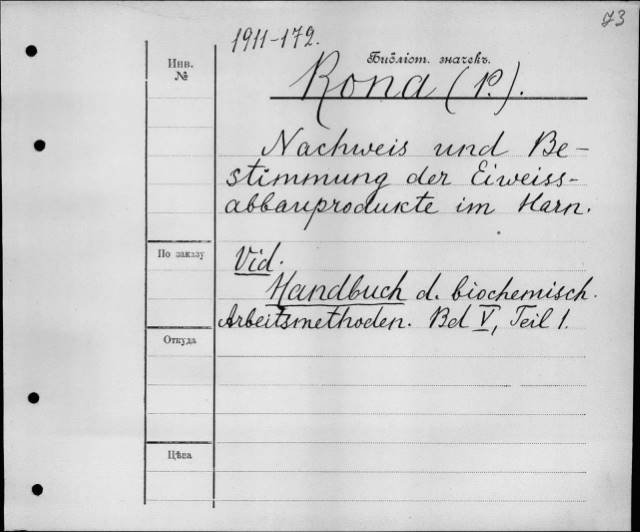 73
1911-172.
Библіот. значекъ.
Инв.
№
Rona (P.).
Nachweis und Be-
stimmung der Eiweiss-
abbauprodukte im Harn.
По заказу
Vid.
Handbuch d. biochemisch.
Arbeitsmethoden. Bd V, Teil 1.
Откуда
Цѣна